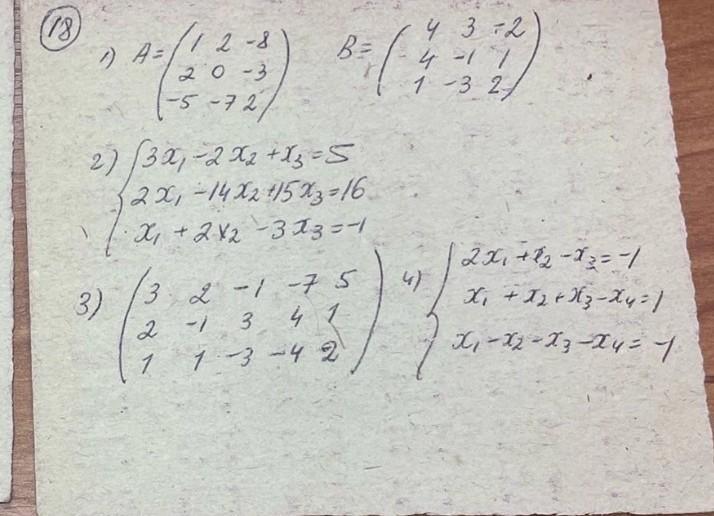 18
1) A = ( 1 2 -8
2 0 -3
-5 -7 2 )
B = ( 4 3 -2
4 -1 1
1 -3 2 )
2) { 3x₁ - 2x₂ + x₃ = 5
2x₁ - 14x₂ + 15x₃ = 16
x₁ + 2x₂ - 3x₃ = -1
3) ( 3 2 -1 -7 5
2 -1 3 4 1
1 1 -3 -4 2 )
4) { 2x₁ + x₂ - x₃ = -1
x₁ + x₂ + x₃ - x₄ = 1
x₁ - x₂ - x₃ - x₄ = -1